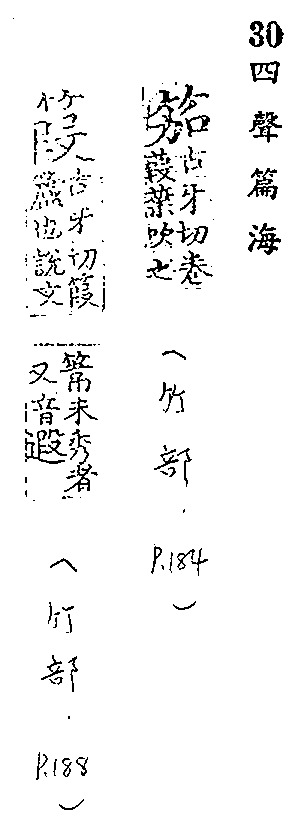 30 四聲篇海
笳 古牙切卷
葭葉吹之
(竹部.P.184)
古牙切
蘆也說文
未秀者
又音遐
(竹部.P.188)